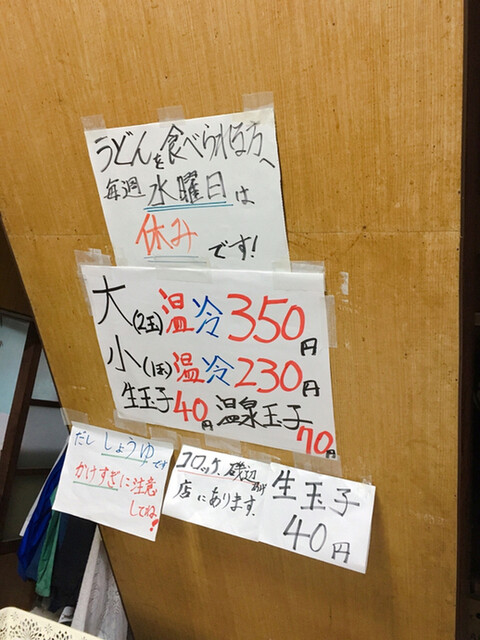 うどんを食べられる方へ
毎週 水曜日は
休みです!
大(2玉)温冷350円
小(1玉)温冷230円
生玉子40円 温泉玉子70円
だし しょうゆです
かけすぎに注意
してね!
コロッケ 磯辺あげ
店にあります.
生玉子
40円